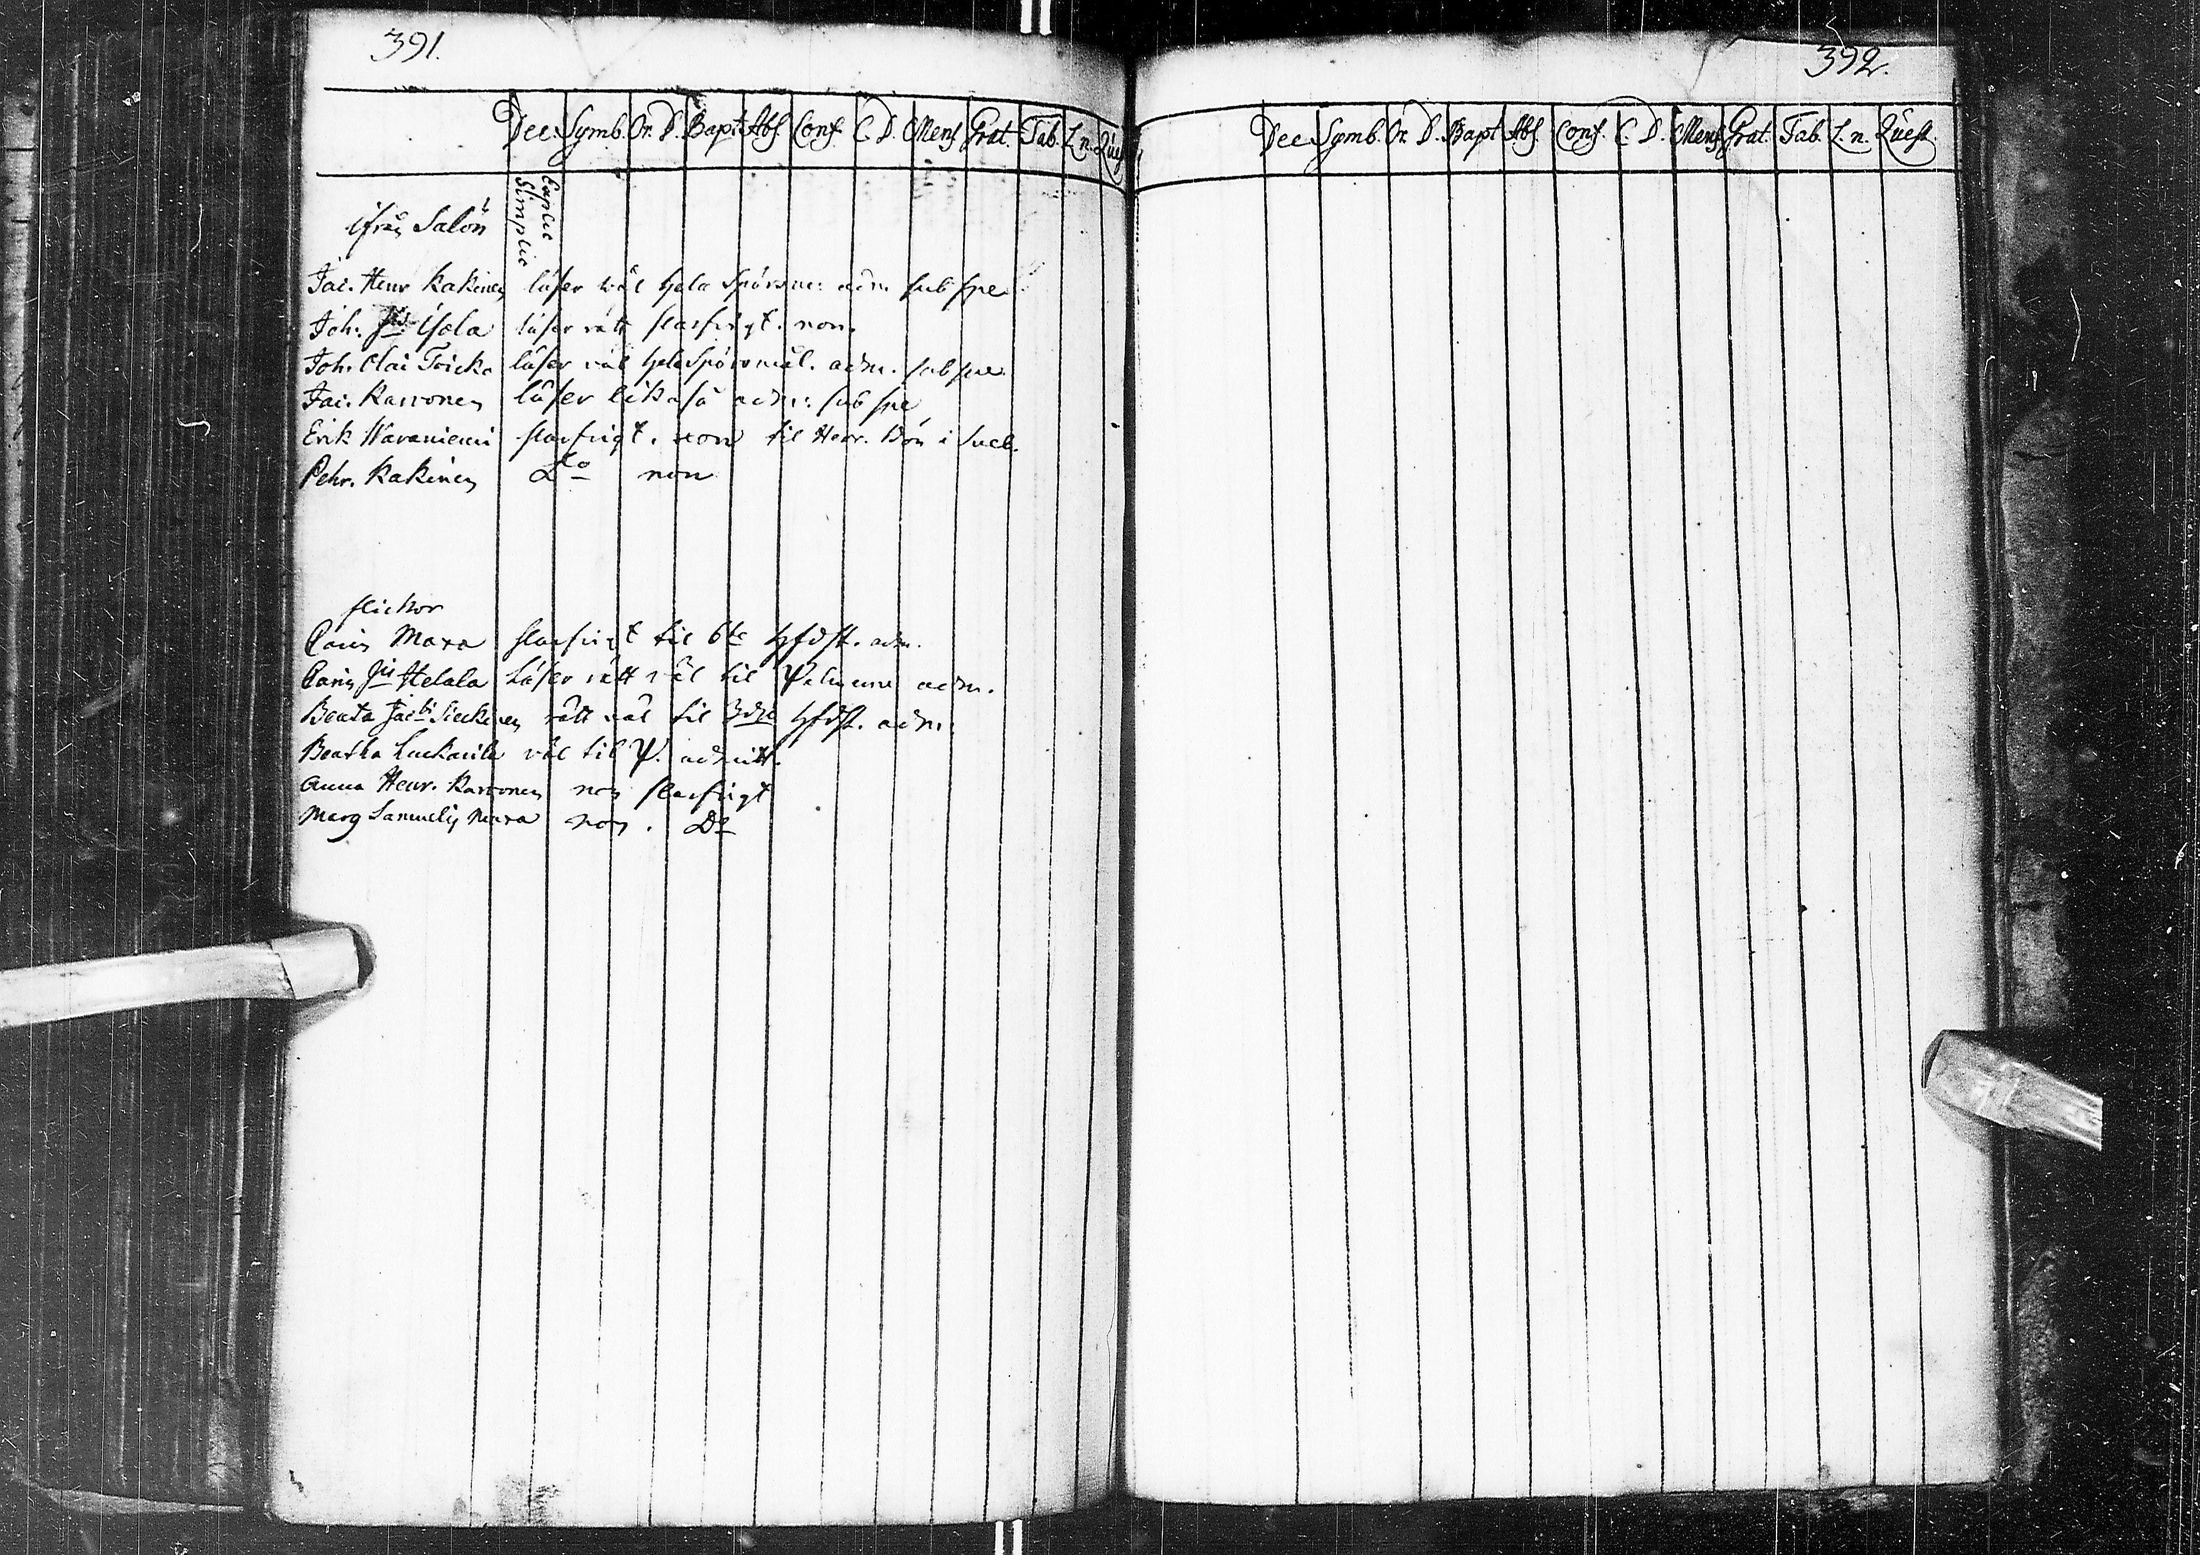 391.
Dec. Symb. Or. D. Bapt. Abs. Conf. C. D. Mens. Grat. Tab. L. n. Quest.
Simplic
Explic
ifrån Salon
Jac. Henr Kakinen läser wäl hela Spörsm: adm. sub spe
Joh. Isola läser rätt slarfwigt. non.
Joh. Olai Tricka läser väl hela Spörsmål. adm. sub spe.
Jac. Karvonen läser lika så adm: sub spe
Erik Waraniemi slarfvigt. non til Herr. Bön i
Pehr. Kakinen Dto non
flickor
Carin Mara slarfvigt til 6te Hfdst. adm.
Carin Helala Läser rätt väl til Psalmerne adm.
Beata Jacbi rätt väl til 3die Hfdst. adm:
Beatha väl til Ψ. admitt.
Anna Henr. Karvonen non slarfvigt
Marg Samuelis Mara non. Do
392.
Dec. Symb. Or. D. Bapt Abs. Conf. C. D. Mens. Grat. Tab. L. n. Quest.